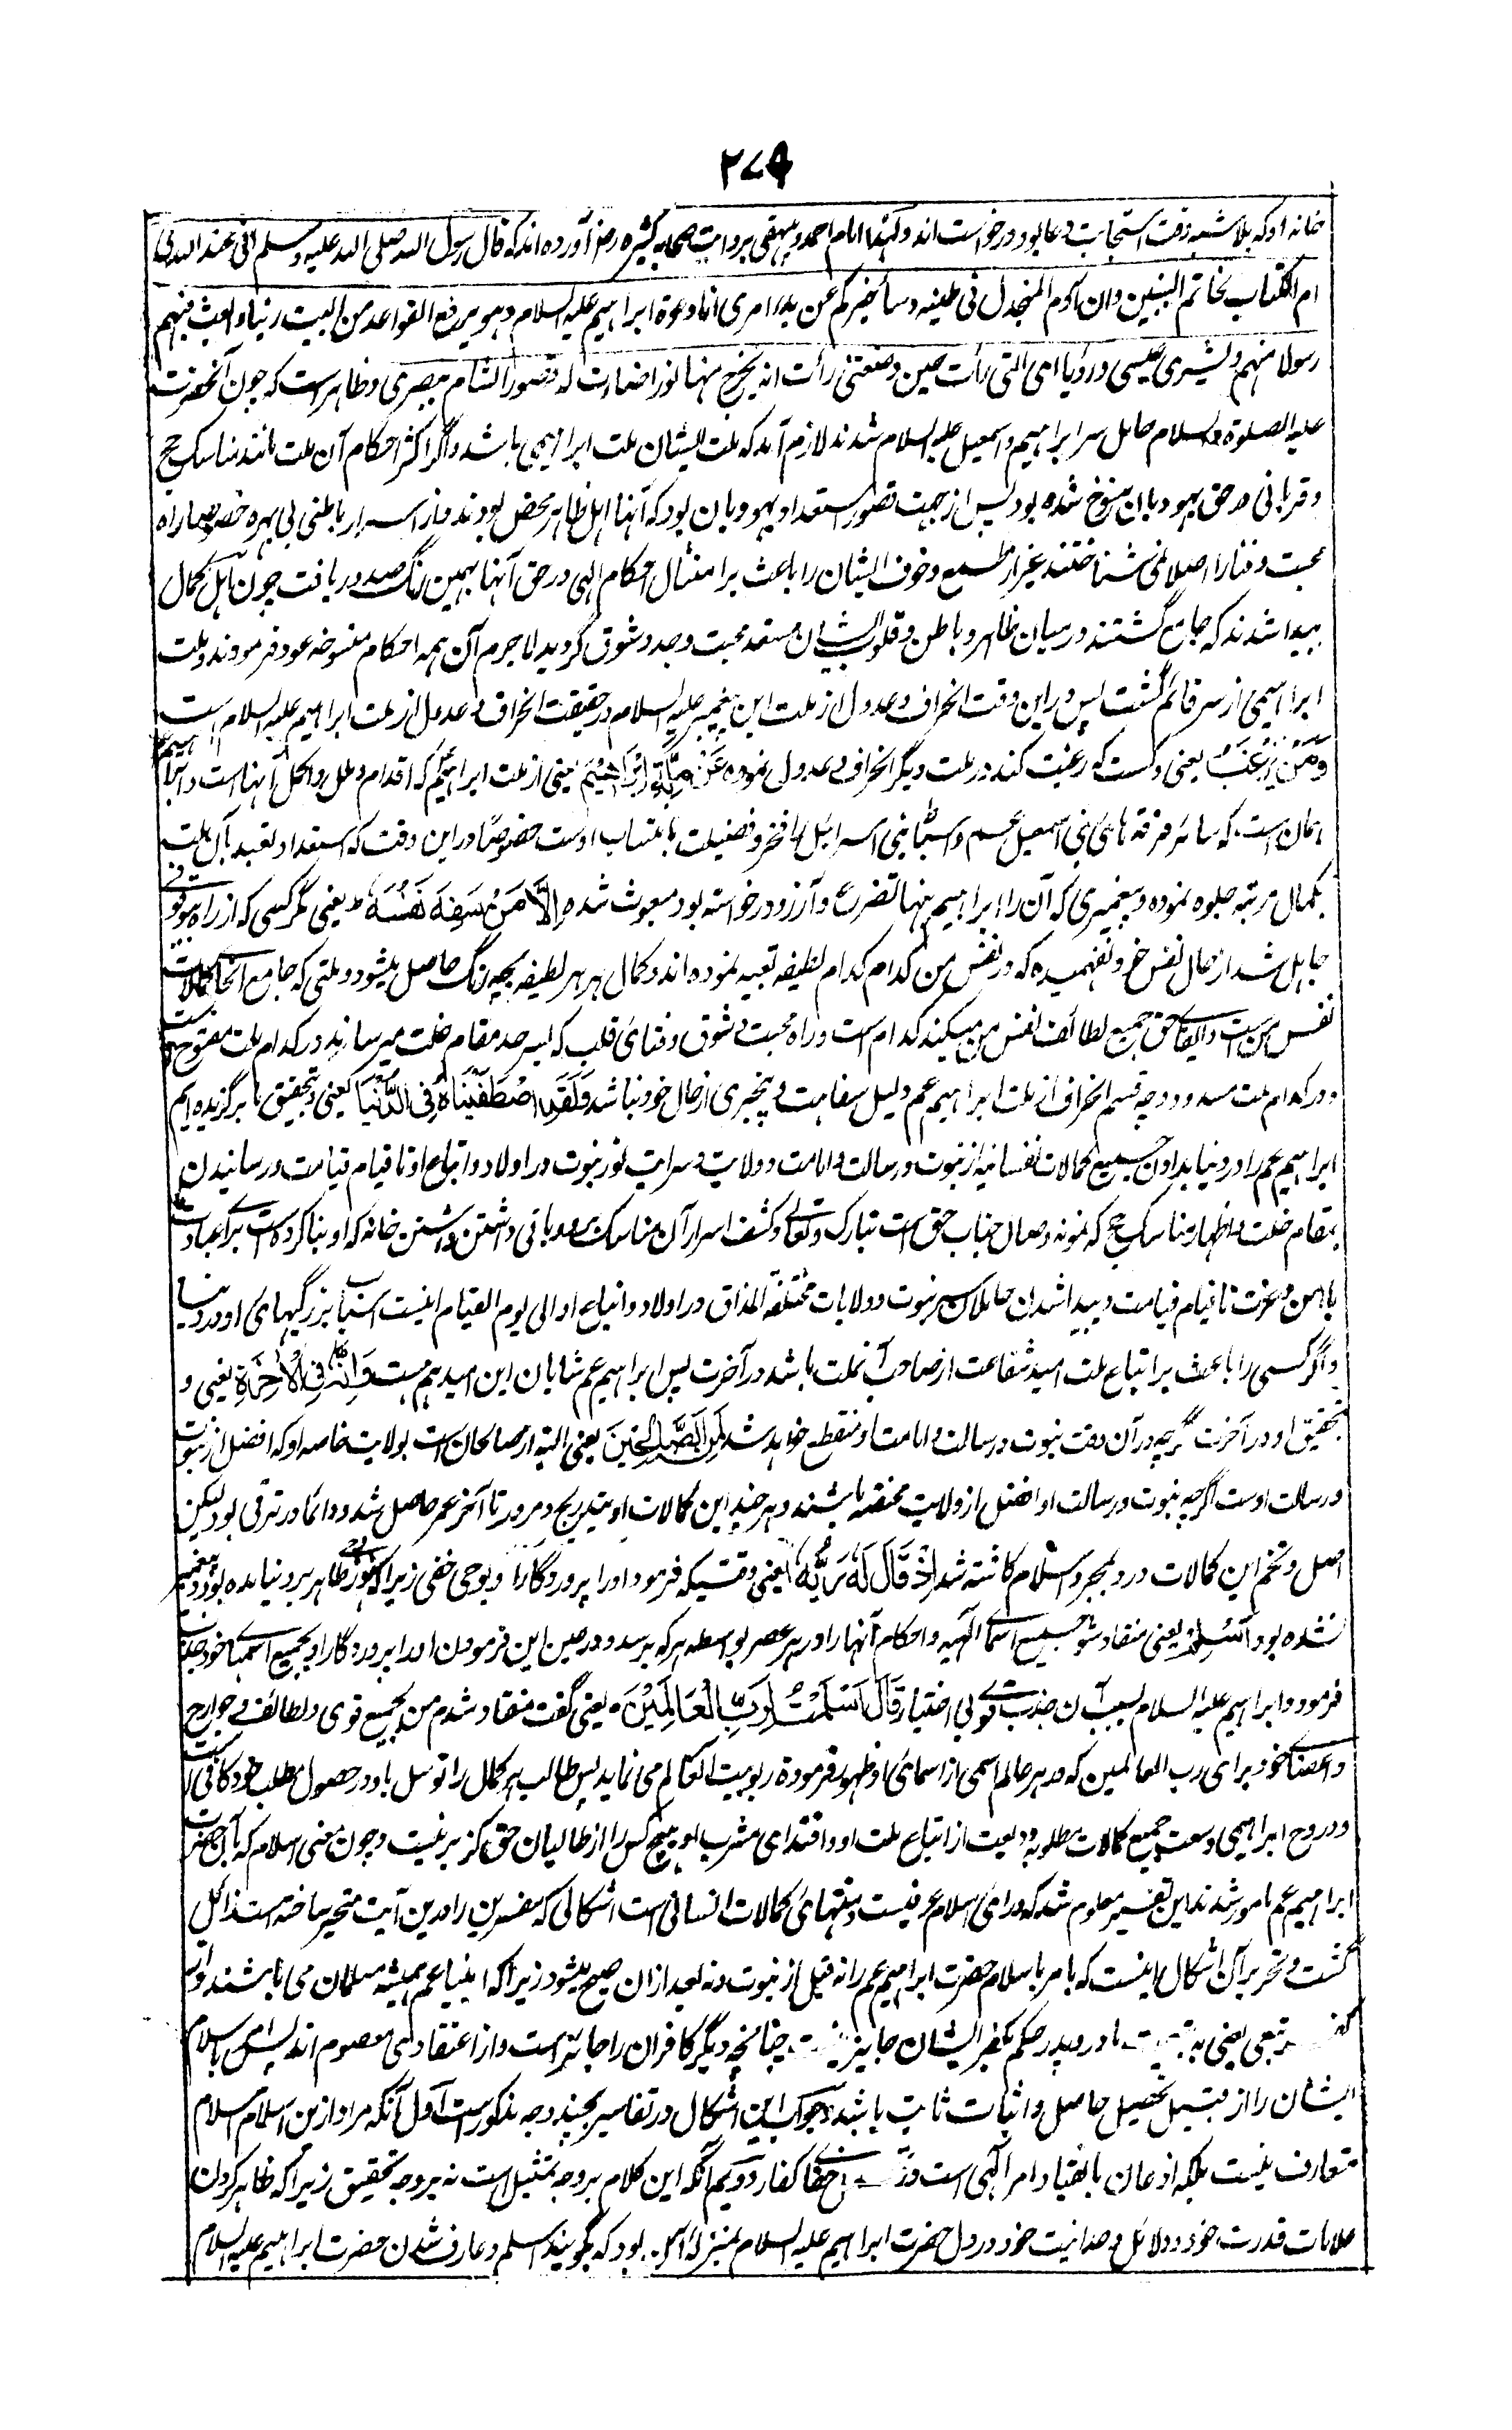 ۲۷۹
خانه او که بلاشبهه وقت استجابت دعا بود درخواست‌اند ولهذا امام احمد و بیهقی بروایت صحابه کثیره رض آورده‌اند که قال رسول الله صلی الله علیه وسلم انی عند الله فی
ام الکتاب لخاتم النبیین وان آدم لمنجدل فی طینه وسأخبرکم عن بدء امری انا دعوة ابراهیم علیه السلام وهو یرفع القواعد من البیت ربنا وابعث فیهم
رسولا منهم وبشری عیسی ورؤیا امی التی رأت حین وضعتنی رأت انه یخرج منها نور اضاءت له قصور الشام ببصری وظاهر است که چون آنحضرت
علیه الصلوة والسلام حامل سر ابراهیم واسمعیل علیه السلام شدند لازم آمد که ملت ایشان ملت ابراهیمی باشد واگر اکثر احکام آن ملت مانند مناسک حج
وقربانی در حق یهودیان منسوخ شده بود پس از جهت قصور استعداد یهودیان بود که آنها اهل ظاهر محض بودند واز اسرار باطنی بی بهره خصوصا راه
محبت وفنا را اصلا نمی شناختند غیر از طمع وخوف ایشان را باعث بر امتثال احکام الهی در حق آنها بهمین رنگ صدور یافت چون اهل کمال
پیدا شدند که جامع گشتند در میان ظاهر وباطن وقلوب ایشان مستعد محبت ووجد وشوق گردید لاجرم آن همه احکام منسوخه عود فرمودند وملت
ابراهیمی از سر قائم گشت پس در این وقت انحراف وعدول از ملت این پیغمبر علیه السلام در حقیقت انحراف وعدول از ملت ابراهیم علیه السلام است
وَمَنْ يَرْغَبُ یعنی وکیست که رغبت کند در ملت دیگر انحراف وعدول نموده عَنْ مِلَّةِ اِبْرَاهِيْمَ یعنی از ملت ابراهیم که اقدام ملل واکمل آنهاست
همان است که سائر فرقه‌های بنی اسمعیل عم واسباط بنی اسرائیل را فخر وفضیلت بانتساب اوست خصوصا در این وقت که استعداد تعبد بآن ملت
بکمال مرتبه جلوه نموده وپیغمبری که آن را ابراهیم بنهایت تضرع وآرزو درخواسته بود مبعوث شده اِلَّا مَنْ سَفِهَ نَفْسَهٗ یعنی مگر کسی که از راه بیوقوفی
جاهل شد از حال نفس خود ونفهمیده که در نفس من کدام کدام لطیفه تعبیه نموده‌اند وکمال هر هر لطیفه بچه رنگ حاصل میشود وملتی که جامع انحای کمالات
نفس من است وایفای حق جمیع لطائف نفس من میکند کدام است وراه محبت وشوق وفنای قلب که بسرحد مقام خلت میرساند در کدام ملت مفتوح است
ودر کدام ملت مسدود ودر چه قسم انحراف از ملت ابراهیم عم دلیل سفاهت وبیخبری از حال خود نباشد وَلَقَدِ اصْطَفَيْنَاهُ فِى الدُّنْيَا یعنی وبتحقیق ما برگزیده‌ایم
ابراهیم عم را در دنیا بدادن جمیع کمالات نفسانیه از نبوت ورسالت وامامت وولایت وسرایت نور نبوت در اولاد واتباع او تا قیام قیامت ورسانیدن
بمقام خلت واظهار مناسک حج که نمونه وصال جناب حق است تبارک وتعالی وکشف اسرار آن مناسک بر وی وباقی داشتن خانه که او بنا کرده است برای عبادت
باامن وعزت تا قیام قیامت وپیدا شدن حاملان سر نبوت وولایات مختلفة المذاق در اولاد واتباع او الی یوم القیام اینست اسباب بزرگیهای او در دنیا
واگر کسی را باعث بر اتباع ملت امید شفاعت از صاحب آنملت باشد در آخرت پس ابراهیم عم شایان این امید هم هست وَاِنَّهٗ فِى الْاٰخِرَةِ یعنی و
بتحقیق او در آخرت گرچه در آن وقت نبوت ورسالت وامامت او منقطع خواهد شد لَمِنَ الصّٰلِحِيْنَ یعنی البته از صالحان است بولایت خاصه او که افضل از نبوت
ورسالت اوست اگرچه نبوت ورسالت او افضل از ولایت مختصه باشند وهرچند این کمالات او بتدریج ومرور تا آخر عمر حاصل شد ودائما در ترقی بود لیکن
اصل وتخم این کمالات در وی بمجرد اسلام کاشته شد اِذْ قَالَ لَهٗ رَبُّهٗ یعنی وقتیکه فرمود او را پروردگار او بوحی خفی زیرا که هنوز وحی ظاهر برو نیامده بود وپیغمبر
نشده بود اَسْلِمْ یعنی منقاد شو جمیع اسمای الهیه واحکام آنها را در هر عصر بواسطه هر که برسد ودر حین این فرمودن او را پروردگار او بجمیع اسمای خود جذب
فرمود وابراهیم علیه السلام بسبب آن جذب قوی بی اختیار قَالَ اَسْلَمْتُ لِرَبِّ الْعَالَمِيْنَ یعنی گفت منقاد شدم من بجمیع قوی ولطائف وجوارح
واعضای خود برای رب العالمین که در هر عالم اسمی از اسمای او ظهور فرموده ربوبیت آنعالم می نماید پس طالب هر کمال را توسل باو در حصول مطلب خود کافی است
ودر روح ابراهیمی وسعت جمیع کمالات مطلوبه ودیعت از اتباع ملت او واقتدای مشرب او هیچ کس را از طالبان حق گزیر نیست وچون معنی اسلام که بآن حضرت
ابراهیم عم مامور شدند باین تفسیر معلوم شد که ورای اسلام عرفیست ومنتهای کمالات انسانی است اشکالی که مفسرین را در این آیت متحیر ساخته است زائل
گشت وتحریر آن اشکال اینست که امر باسلام حضرت ابراهیم عم را نه قبل از نبوت ونه بعد از ان صحیح میشود زیرا که انبیا عم همیشه مسلمان می باشند واز
کفر تبعی یعنی به تبعیت مادر وپدر حکم بکفر ایشان جایز نیست چنانچه دیگر کافران را جائز است واز اعتقادی معصوم اند پس امر باسلام
ایشان را از قبیل تحصیل حاصل واثبات ثابت باشد وجواب این اشکال در تفاسیر بچند وجه مذکور است اول آنکه مراد ازین اسلام اسلام
متعارف نیست بلکه اذعان بانقیاد امر الهی است کفار دویم آنکه این کلام بر وجه تمثیل است نه بر وجه تحقیق زیرا که ظاهر کردن
علامات قدرت خود ودلائل وحدانیت خود در دل حضرت ابراهیم علیه السلام بمنزله بود که بگویند اسلم وعارف شدن حضرت ابراهیم علیه السلام